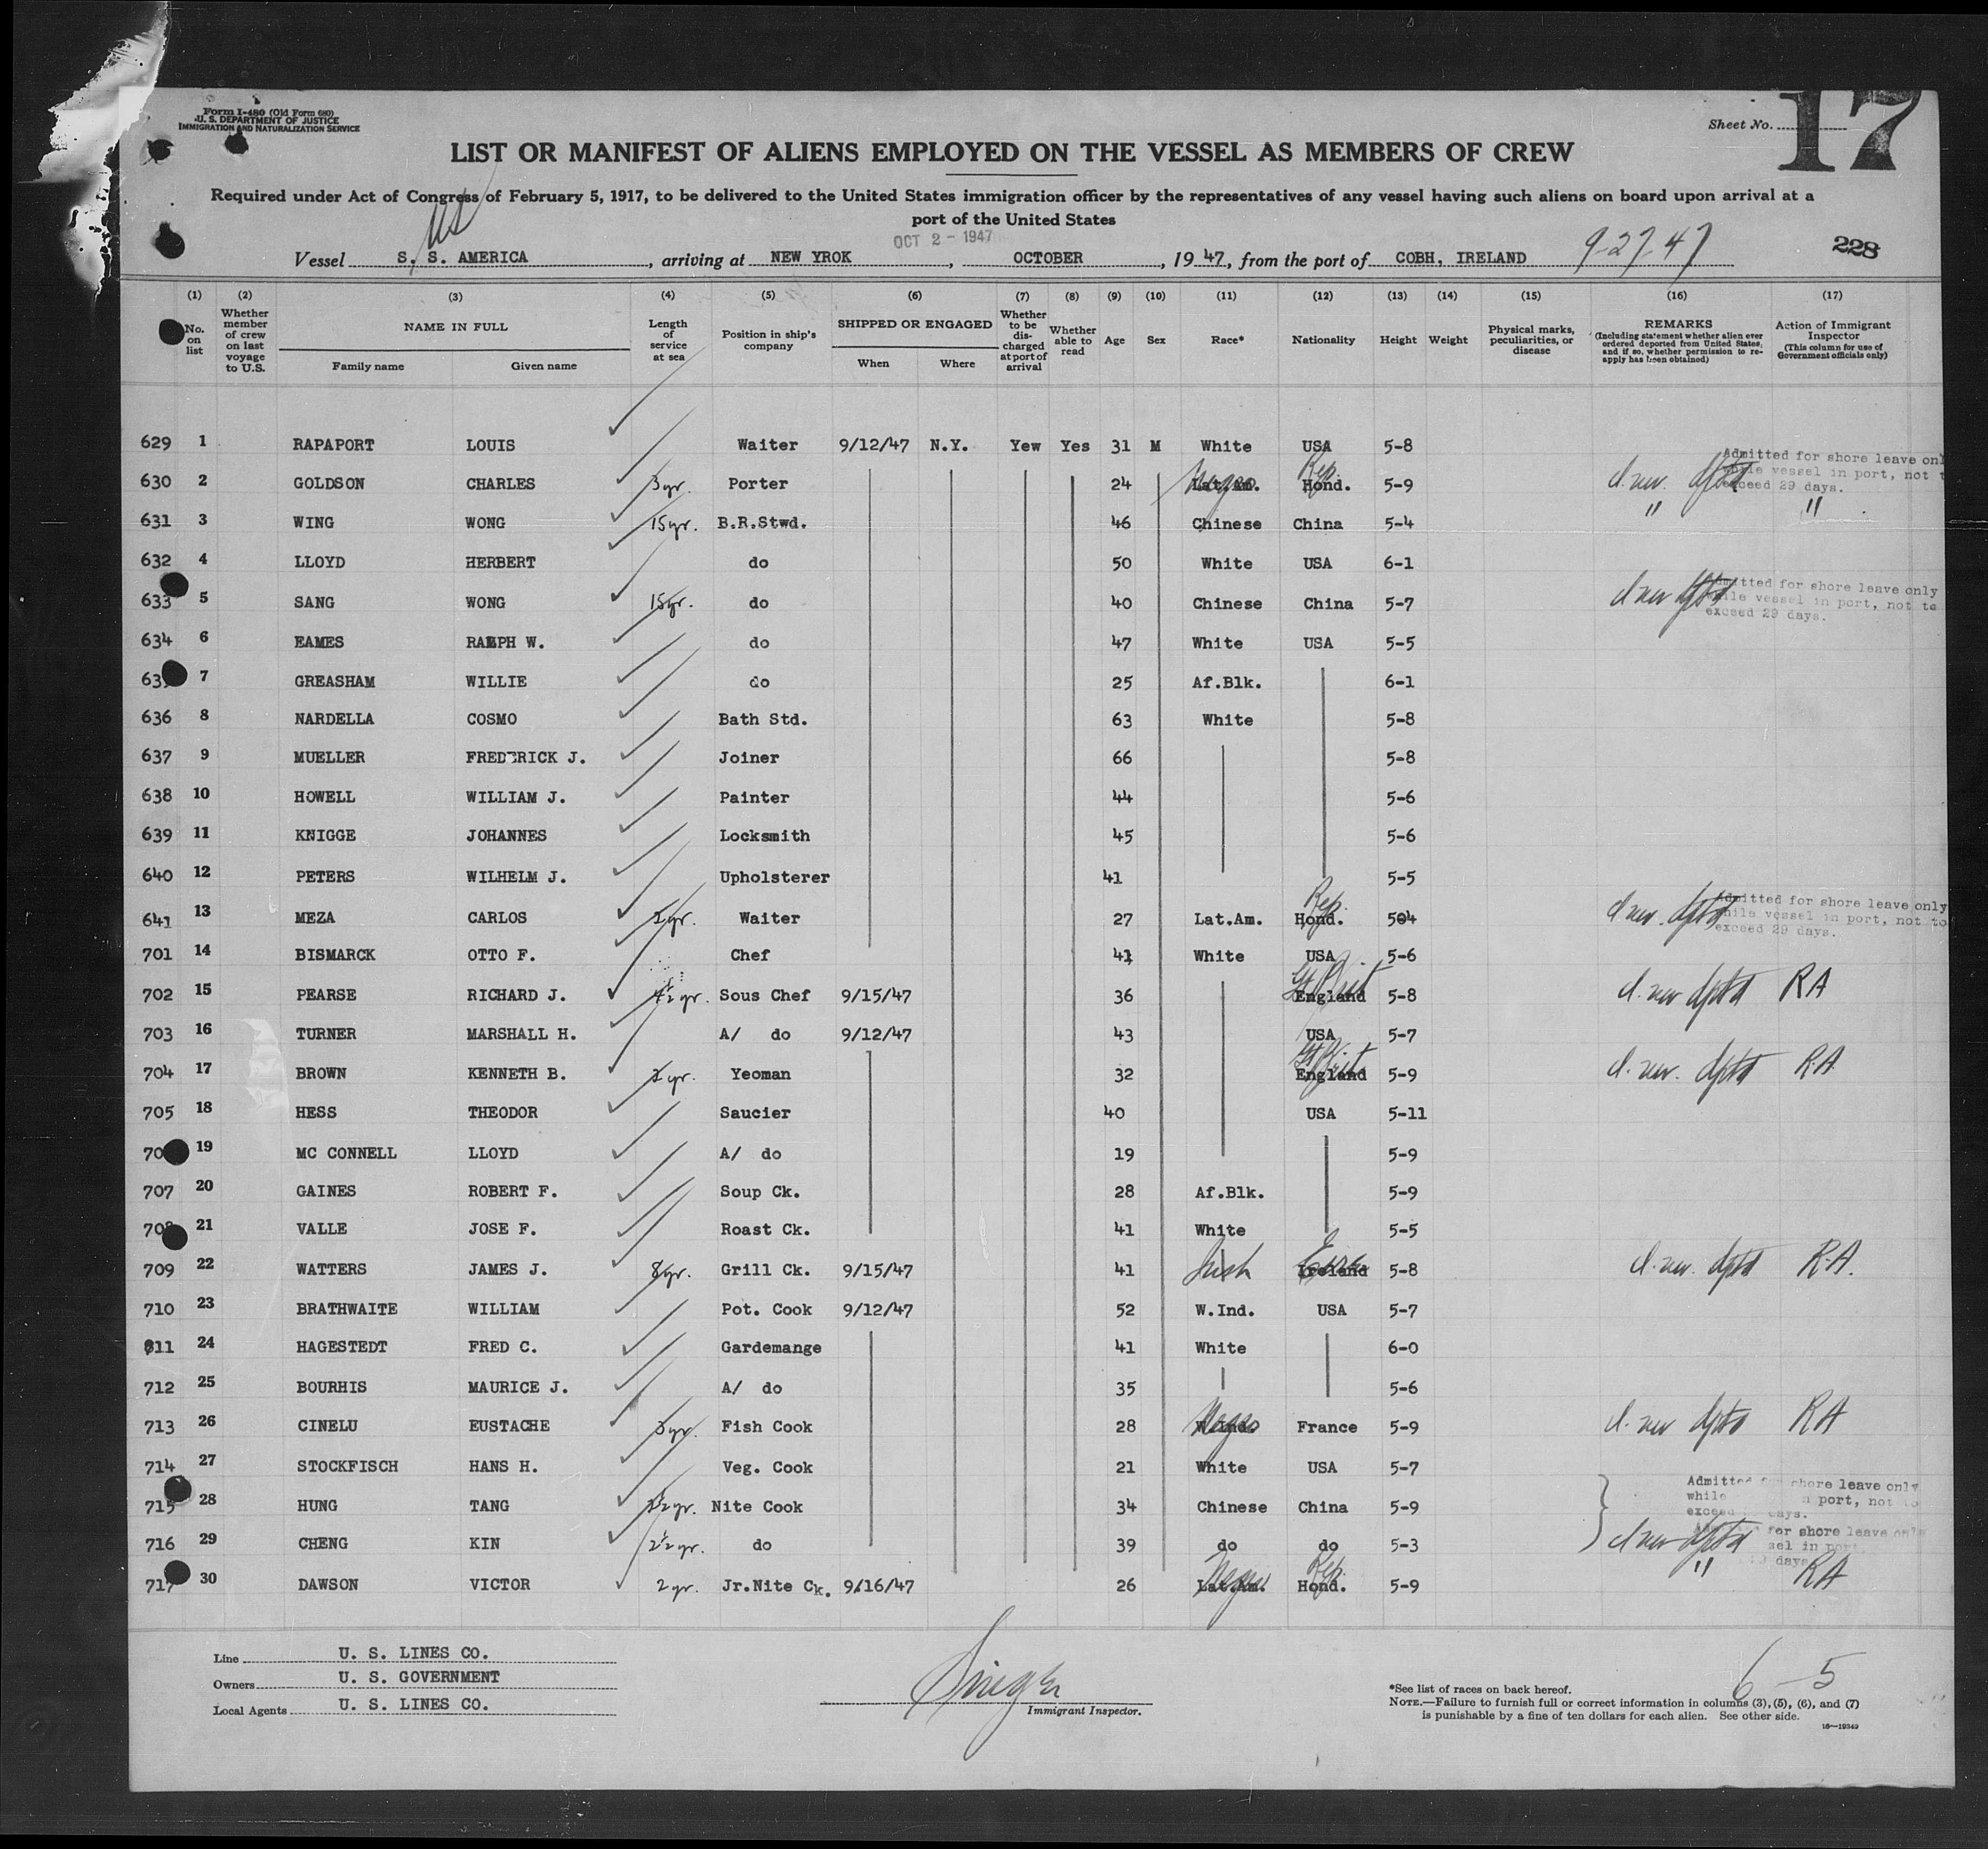 Form I-480 (Old Form 680)
U. S. DEPARTMENT OF JUSTICE
IMMIGRATION AND NATURALIZATION SERVICE
Sheet No. 17
LIST OR MANIFEST OF ALIENS EMPLOYED ON THE VESSEL AS MEMBERS OF CREW
Required under Act of Congress of February 5, 1917, to be delivered to the United States immigration officer by the representatives of any vessel having such aliens on board upon arrival at a
port of the United States
OCT 2 - 1947
Vessel S. S. AMERICA, arriving at NEW YROK, OCTOBER, 1947, from the port of COBH, IRELAND 9-27-47 228
(1) (2) (3) (4) (5) (6) (7) (8) (9) (10) (11) (12) (13) (14) (15) (16) (17)
No. on list
Whether member of crew on last voyage to U.S.
NAME IN FULL
Family name Given name
Length of service at sea
Position in ship's company
SHIPPED OR ENGAGED
When Where
Whether to be discharged at port of arrival
Whether able to read
Age Sex Race* Nationality Height Weight
Physical marks, peculiarities, or disease
REMARKS
(Including statement whether alien ever ordered deported from United States, and if so, whether permission to re-apply has been obtained)
Action of Immigrant Inspector
(This column for use of Government officials only)
629 1 RAPAPORT LOUIS Waiter 9/12/47 N.Y. Yew Yes 31 M White USA 5-8
630 2 GOLDSON CHARLES 3yr. Porter 24 Negro Lat.Am. Rep. Hond. 5-9 Admitted for shore leave only while vessel in port, not t exceed 29 days.
631 3 WING WONG 15yr. B.R.Stwd. 46 Chinese China 5-4 " "
632 4 LLOYD HERBERT do 50 White USA 6-1
633 5 SANG WONG 15yr. do 40 Chinese China 5-7 Admitted for shore leave only while vessel in port, not to exceed 29 days.
634 6 EAMES RALPH W. do 47 White USA 5-5
63 7 GREASHAM WILLIE do 25 Af.Blk. 6-1
636 8 NARDELLA COSMO Bath Std. 63 White 5-8
637 9 MUELLER FREDERICK J. Joiner 66 5-8
638 10 HOWELL WILLIAM J. Painter 44 5-6
639 11 KNIGGE JOHANNES Locksmith 45 5-6
640 12 PETERS WILHELM J. Upholsterer 41 5-5
641 13 MEZA CARLOS yr. Waiter 27 Lat.Am. Rep. Hond. 504 Admitted for shore leave only while vessel in port, not to exceed 29 days.
701 14 BISMARCK OTTO F. Chef 41 White USA 5-6
702 15 PEARSE RICHARD J. 4½yr. Sous Chef 9/15/47 36 Gt Brit England 5-8 RA
703 16 TURNER MARSHALL H. A/ do 9/12/47 43 USA 5-7
704 17 BROWN KENNETH B. yr. Yeoman 32 Gt Brit England 5-9 RA
705 18 HESS THEODOR Saucier 40 USA 5-11
70 19 MC CONNELL LLOYD A/ do 19 5-9
707 20 GAINES ROBERT F. Soup Ck. 28 Af.Blk. 5-9
708 21 VALLE JOSE F. Roast Ck. 41 White 5-5
709 22 WATTERS JAMES J. 8yr. Grill Ck. 9/15/47 41 Irish Eire Ireland 5-8 R.A.
710 23 BRATHWAITE WILLIAM Pot. Cook 9/12/47 52 W.Ind. USA 5-7
711 24 HAGESTEDT FRED C. Gardemange 41 White 6-0
712 25 BOURHIS MAURICE J. A/ do 35 5-6
713 26 CINELU EUSTACHE 3yr. Fish Cook 28 Negro W.Ind. France 5-9 RA
714 27 STOCKFISCH HANS H. Veg. Cook 21 White USA 5-7
715 28 HUNG TANG 2½yr. Nite Cook 34 Chinese China 5-9 Admitted for shore leave only while in port, not to exceed days.
716 29 CHENG KIN 2½yr. do 39 do do 5-3 for shore leave only
717 30 DAWSON VICTOR 2yr. Jr.Nite Ck. 9/16/47 26 Negro Lat.Am. Rep. Hond. 5-9 " RA
Line U. S. LINES CO.
Owners U. S. GOVERNMENT
Local Agents U. S. LINES CO.
Immigrant Inspector.
6-5
*See list of races on back hereof.
NOTE.—Failure to furnish full or correct information in columns (3), (5), (6), and (7)
is punishable by a fine of ten dollars for each alien. See other side.
16—19349